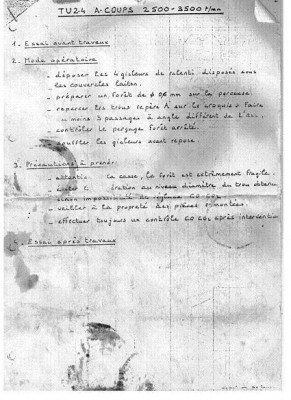 TU24 A-COUPS 2500-3500 T/mn
1. Essai avant travaux
2. Mode opératoire
- déposer les 4 gicleurs de ralenti disposés sous
les couvercles laiton.
- préparer un foret de ø 0,6 mm sur la perceuse.
- repercer les trous repère A sur le croquis faire
au moins 3 passages à angle différent de
- contrôler le perçage foret arrêté.
- souffler les gicleurs avant repose.
3. Précautions à prendre:
- attention la casse, le foret est extrêmement fragile.
- éviter ration au niveau diamètre du trou obtenu
sinon impossibilité de réglage CO CO2
- veiller à la propreté des pièces remontées.
- effectuer toujours un contrôle CO CO2 après intervention
4. Essai après travaux